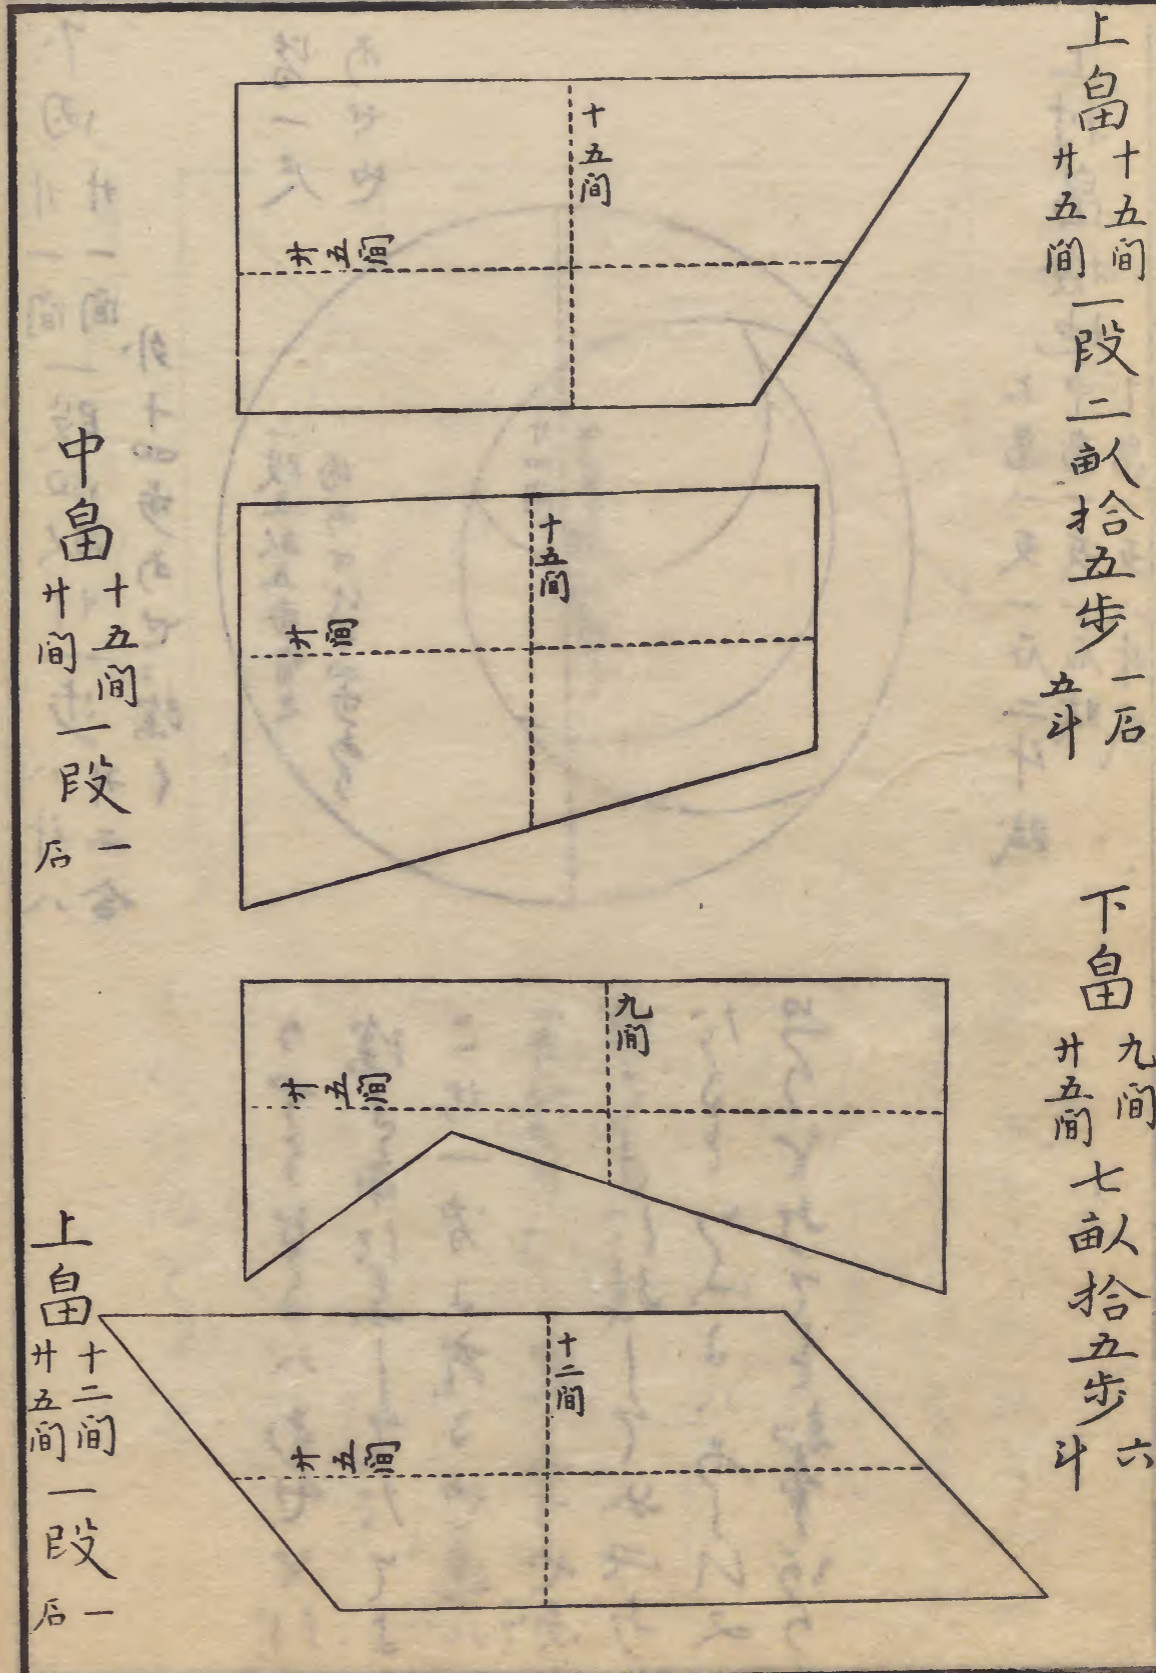 上畠 十五間 廿五間 一段二畝拾五歩 一石 五斗
十五間
廿五間
中畠 十五間 廿間 一段 一石
十五間
廿間
下畠 九間 廿五間 七畝拾五歩 六斗
九間
廿五間
上畠 十二間 廿五間 一段 一石
十二間
廿五間